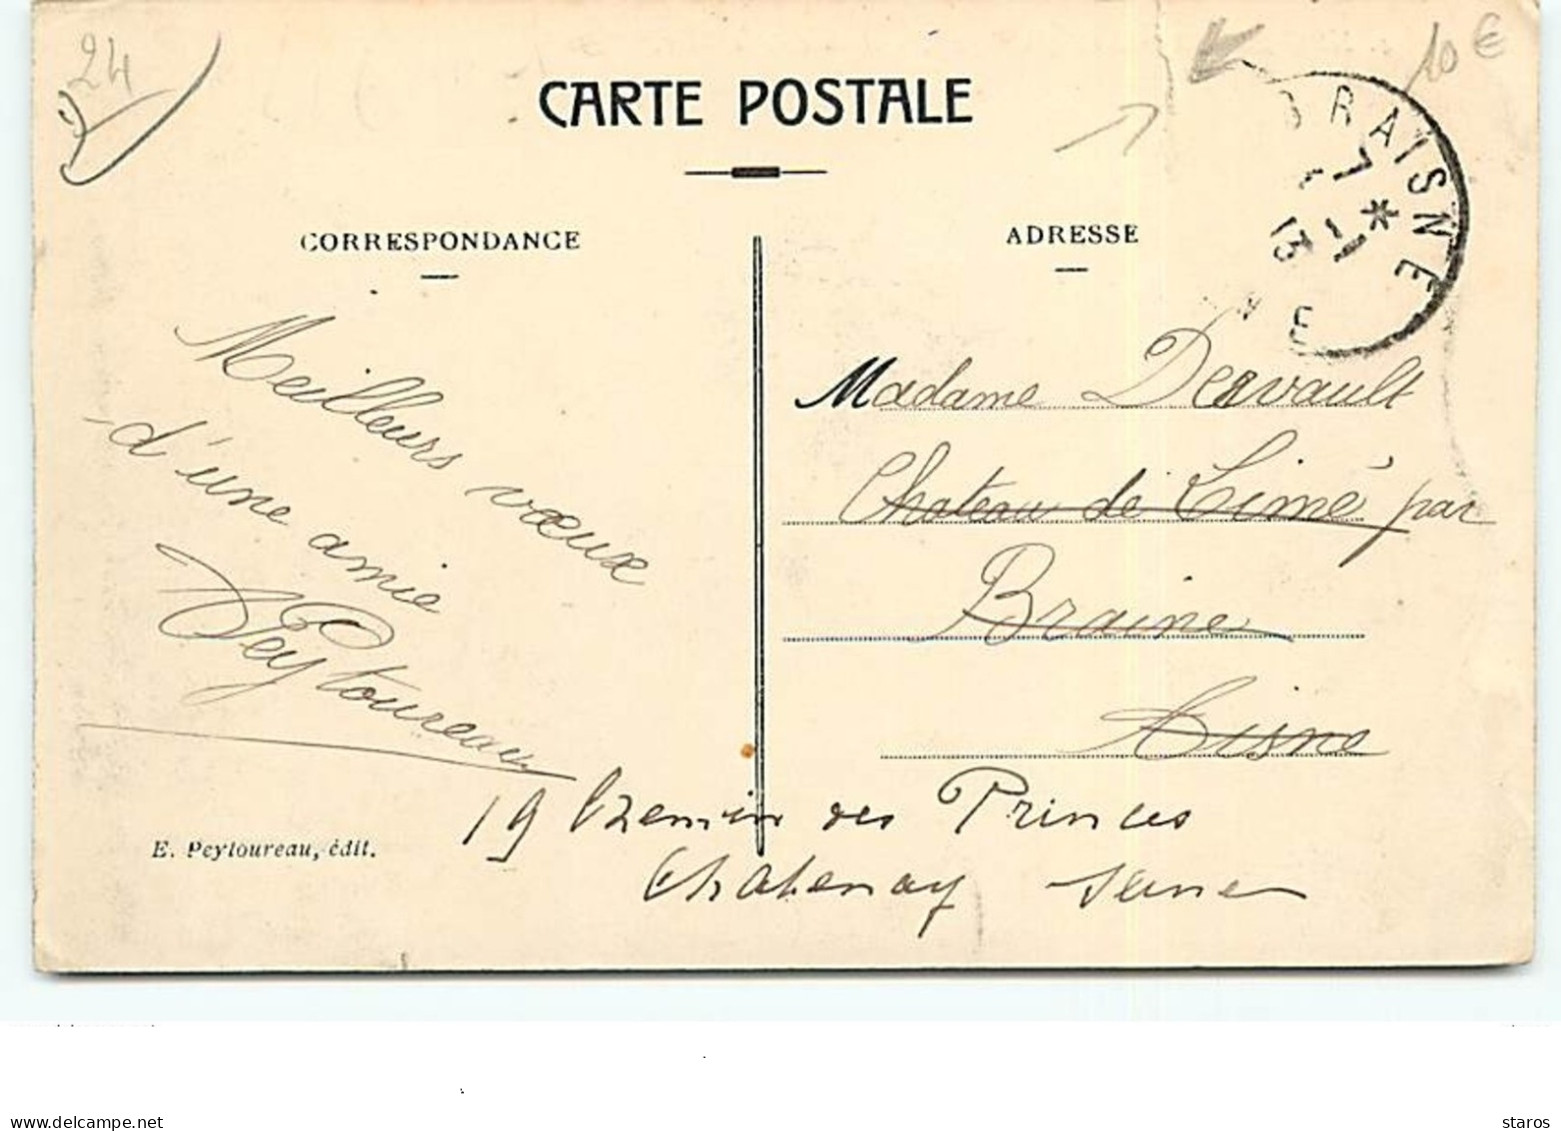 24
10 €
CARTE POSTALE
BRAISNE
7 * 1
13
NE
CORRESPONDANCE
ADRESSE
Meilleurs vœux
d'une amie
Peytoureau
Madame Dervault
Chateau de Cimé par
Braine
Aisne
19 Chemin des Princes
Chatenay Seine
E. Peytoureau, édit.
www.delcampe.net
staros